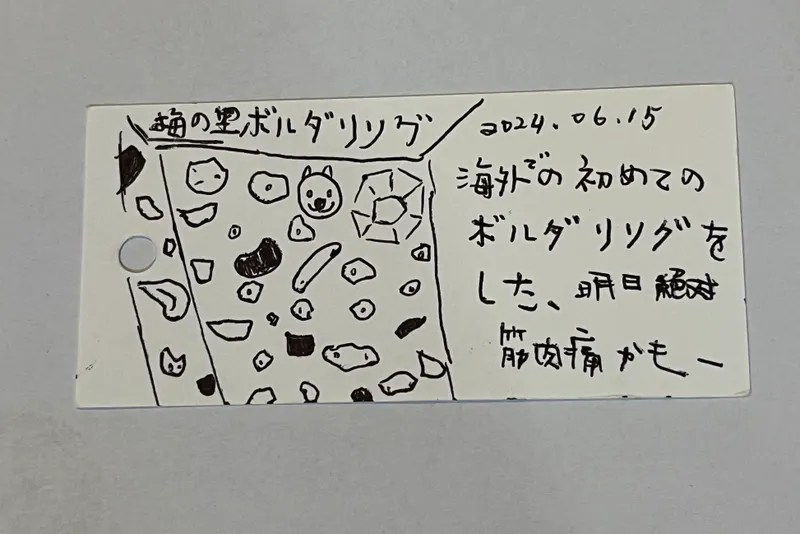 梅の里ボルダリソグ
2024.06.15
海外での初めての
ボルダリソグを
した、明日絶対
筋肉痛かもー